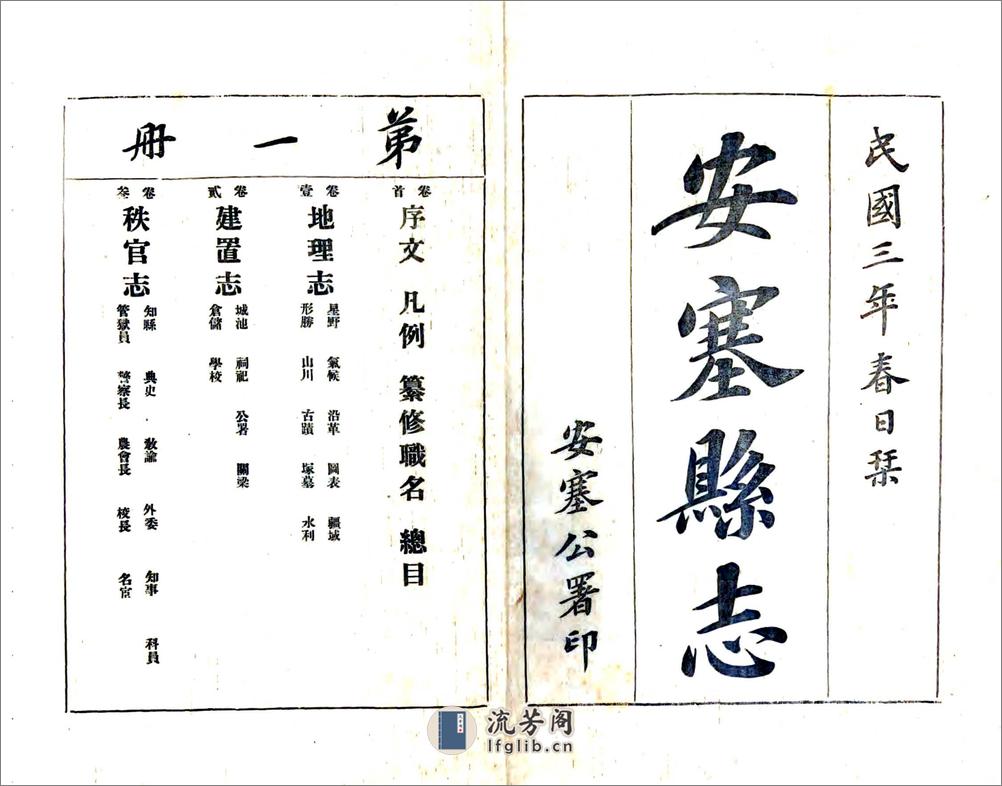 民國三年春日栞
安塞縣志
安塞公署印
第一册
卷首
序文 凡例 纂修職名 總目
卷壹
地理志
星野 氣候 沿革 圖表 疆域
形勝 山川 古蹟 塚墓 水利
卷貳
建置志
城池 祠祀 公署 關梁
倉儲 學校
卷叁
秩官志
知縣 典史 敎諭 外委 知事 科員
管獄員 警察長 農會長 校長 名宦
流芳阁
lfglib.cn